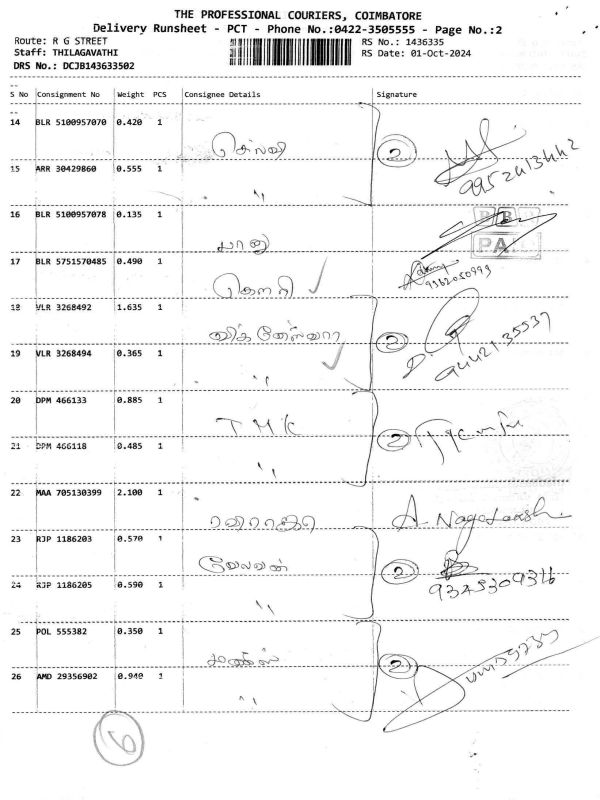 THE PROFESSIONAL COURIERS, COIMBATORE
Delivery Runsheet - PCT - Phone No.:0422-3505555 - Page No.:2
Route: R G STREET RS No.: 1436335
Staff: THILAGAVATHI RS Date: 01-Oct-2024
DRS No.: DCJB143633502
S No Consignment No Weight PCS Consignee Details Signature
14 BLR 5100957070 0.420 1 செல்வி 2
15 ARR 30429860 0.555 1 "
9952413442
16 BLR 5100957078 0.135 1 பானு
PAID
17 BLR 5751570485 0.490 1 கௌரி
18 VLR 3268492 1.635 1 விக்னேஸ்வரா 2
19 VLR 3268494 0.365 1 "
20 DPM 466133 0.885 1 TMK 2
21 DPM 466118 0.485 1 "
22 MAA 705130399 2.100 1 A. Nagalakshmi
23 RJP 1186203 0.570 1 வேலவன் 2
9345309316
24 RJP 1186205 0.590 1 "
25 POL 555382 0.350 1 2
26 AMD 29356902 0.940 1 "
6